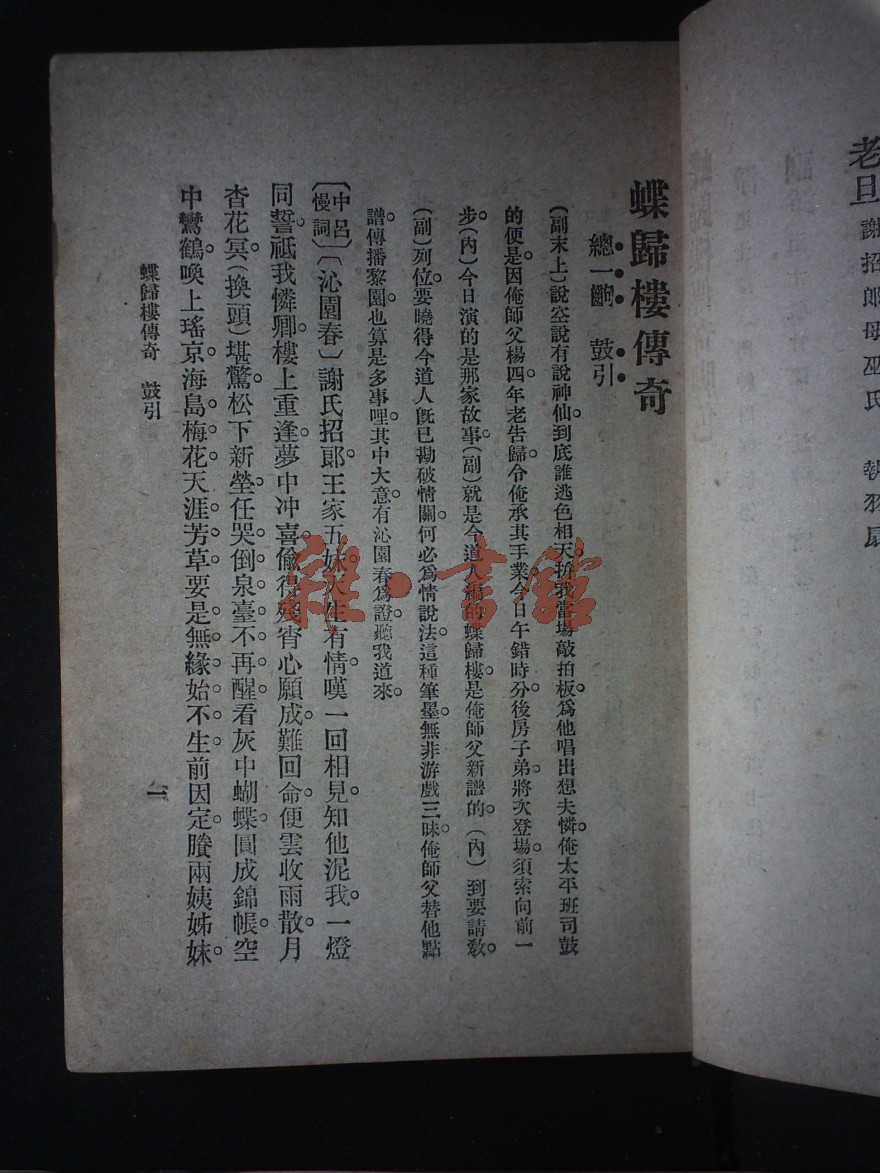 老旦 謝招郎母巫氏 執羽扇
蝶歸樓傳奇
總一齣 鼓引
(副末上)說空說有說神仙。到底誰逃色相天。折我當場敲拍板。爲他唱出想夫憐。俺太平班司鼓
的便是。因俺師父楊四。年老告歸。令俺承其手業。今日午錯時分。後房子弟。將次登場。須索向前一
步。(內)今日演的是那家故事。(副)就是今道人編的蝶歸樓。是俺師父新譜的。(內)到要請敎。
(副)列位要曉得今道人旣已勘破情關。何必爲情說法。這種筆墨。無非游戲三昧。俺師父替他點
譜。傳播黎園。也算是多事哩。其中大意。有沁園春爲證。聽我道來。
〔中呂慢詞〕〔沁園春〕謝氏招郎。王家五妹。天生有情。嘆一回相見。知他泥我。一燈
同誓。祗我憐卿。樓上重逢。夢中冲喜。偷得殘宵心願成。難回命。便雲收雨散。月
杳花冥。(換頭)堪驚。松下新塋。任哭倒泉臺不再醒。看灰中蝴蝶。圓成錦帳。空
中鸞鶴。喚上瑤京。海島梅花。天涯芳草。要是無緣始不生。前因定。賸兩姨姊妹。
蝶歸樓傳奇 鼓引
一
雜·書館